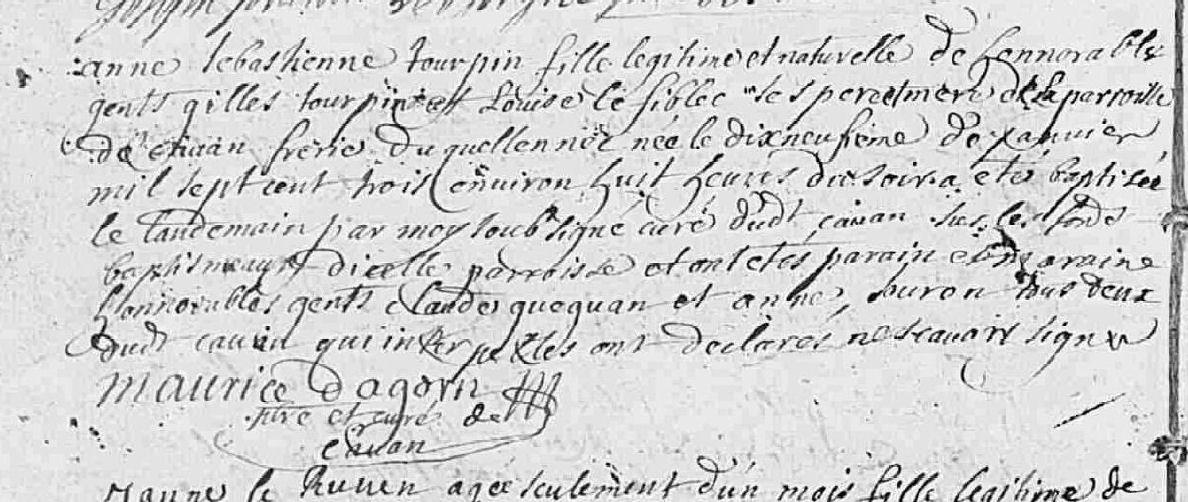 anne sebastienne tourpin fille legitime et naturelle de hennorables
gents gilles tourpin et Louise le fiblec ses pere et mere de la parroisse
de cavan frerie du quellennec née le dixneufieme de janvier
mil sept cent trois environ huit heures du soir a eté baptisée
le landemain par moy soubsigné curé dudt cavan sur les fonds
baptismaux dicelle parroisse et ont etés parain et maraine
honnorables gents claude queguan et anne touron tous deux
dudt cavan qui interpellés ont declarés ne scavoir signer
maurice dagorn
ptre et curé de
Cavan
janne le Ruven agée seulement d'un mois fille legitime de